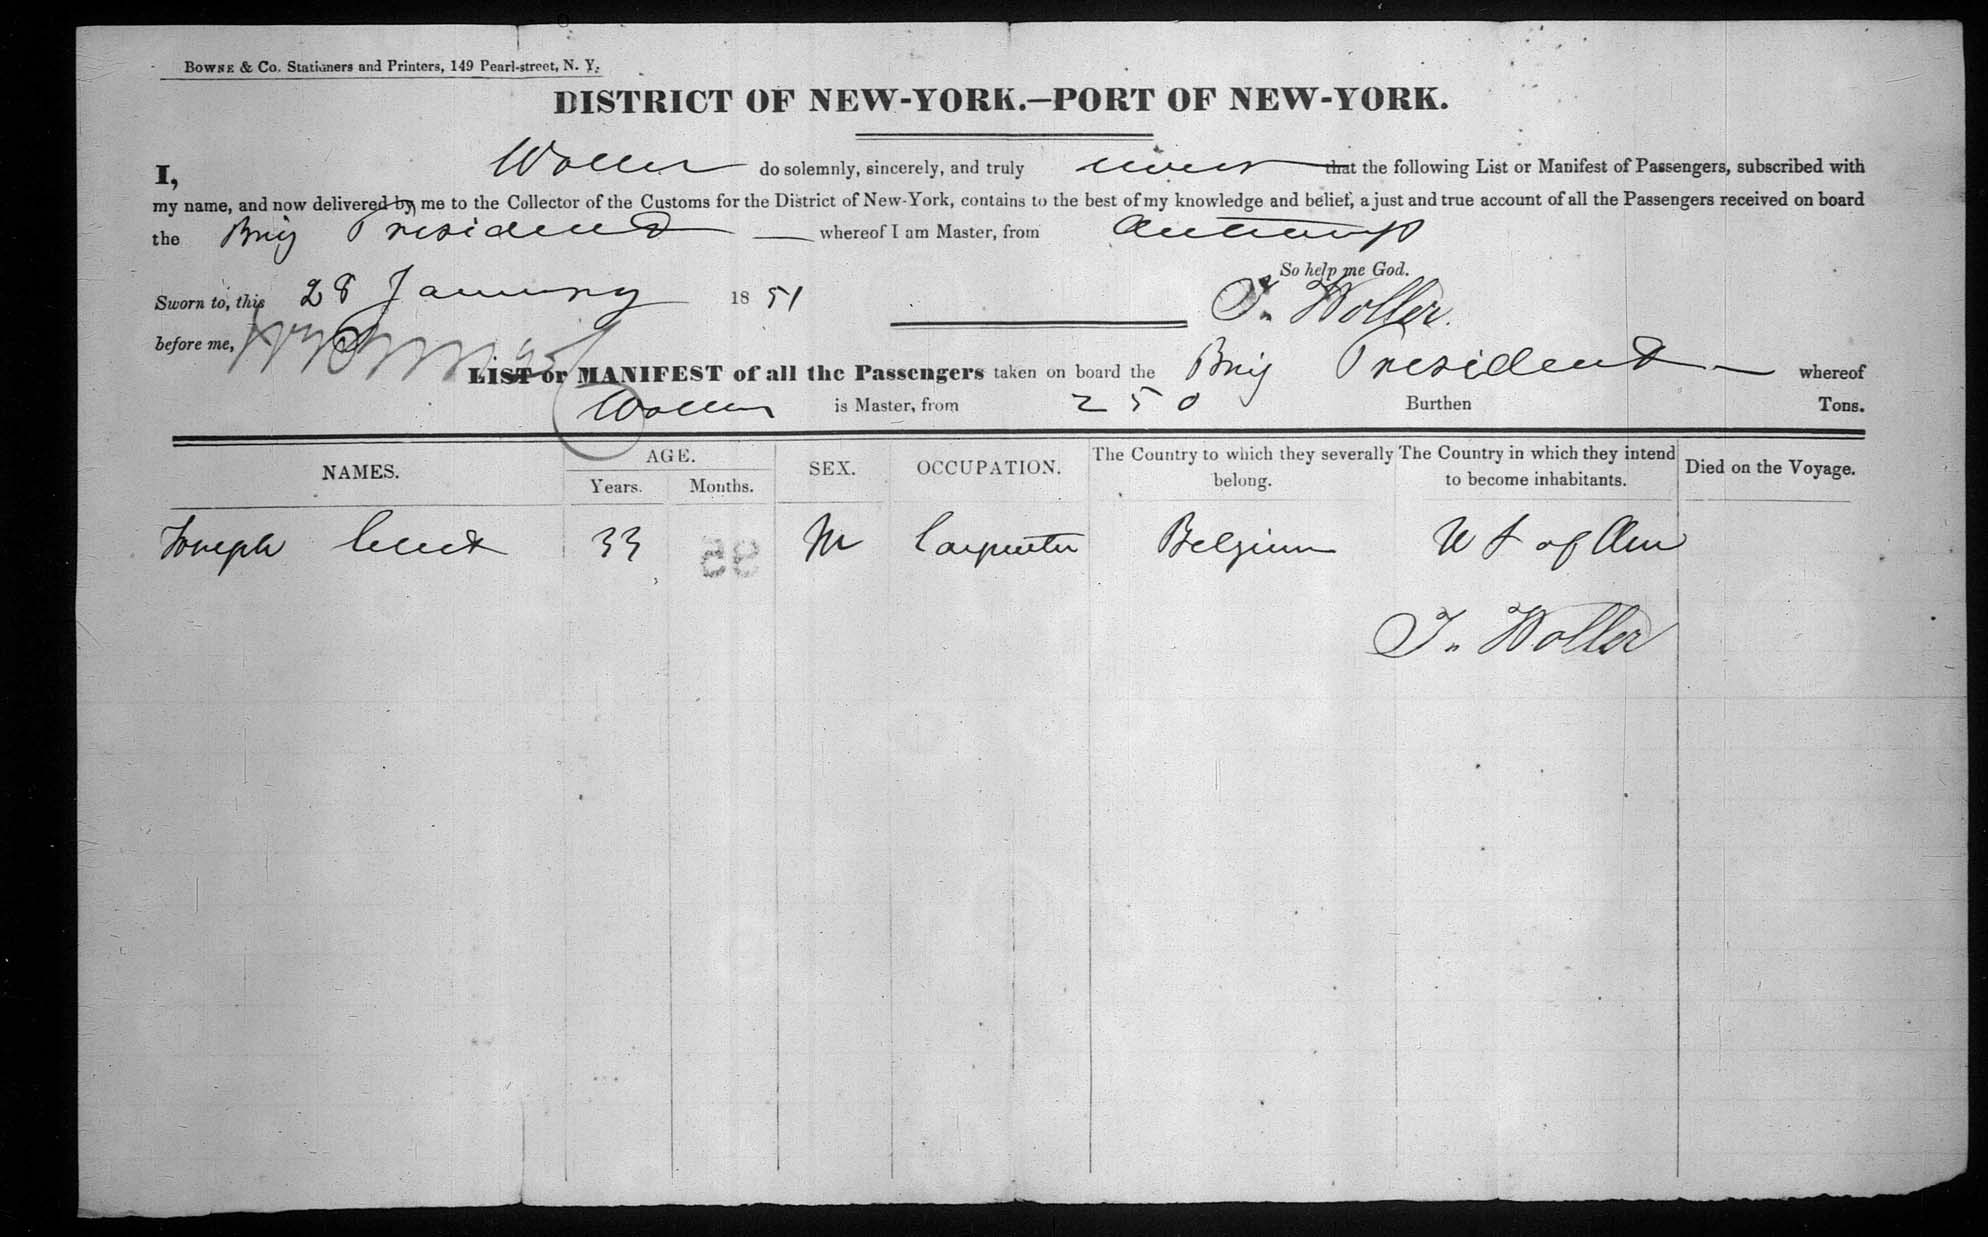 BOWNE & Co. Stationers and Printers, 149 Pearl-street, N. Y.
DISTRICT OF NEW-YORK.—PORT OF NEW-YORK.
I, Woller do solemnly, sincerely, and truly swear that the following List or Manifest of Passengers, subscribed with
my name, and now delivered by me to the Collector of the Customs for the District of New-York, contains to the best of my knowledge and belief, a just and true account of all the Passengers received on board
the Brig President whereof I am Master, from Antwerp
So help me God.
Sworn to, this 28 January 1851
J. Woller.
before me,
LIST or MANIFEST of all the Passengers taken on board the Brig President whereof
Woller is Master, from 250 Burthen Tons.
NAMES. AGE. Years. Months. SEX. OCCUPATION. The Country to which they severally belong. The Country in which they intend to become inhabitants. Died on the Voyage.
Joseph 33 M Carpenter Belgium U S of Am
J. Woller